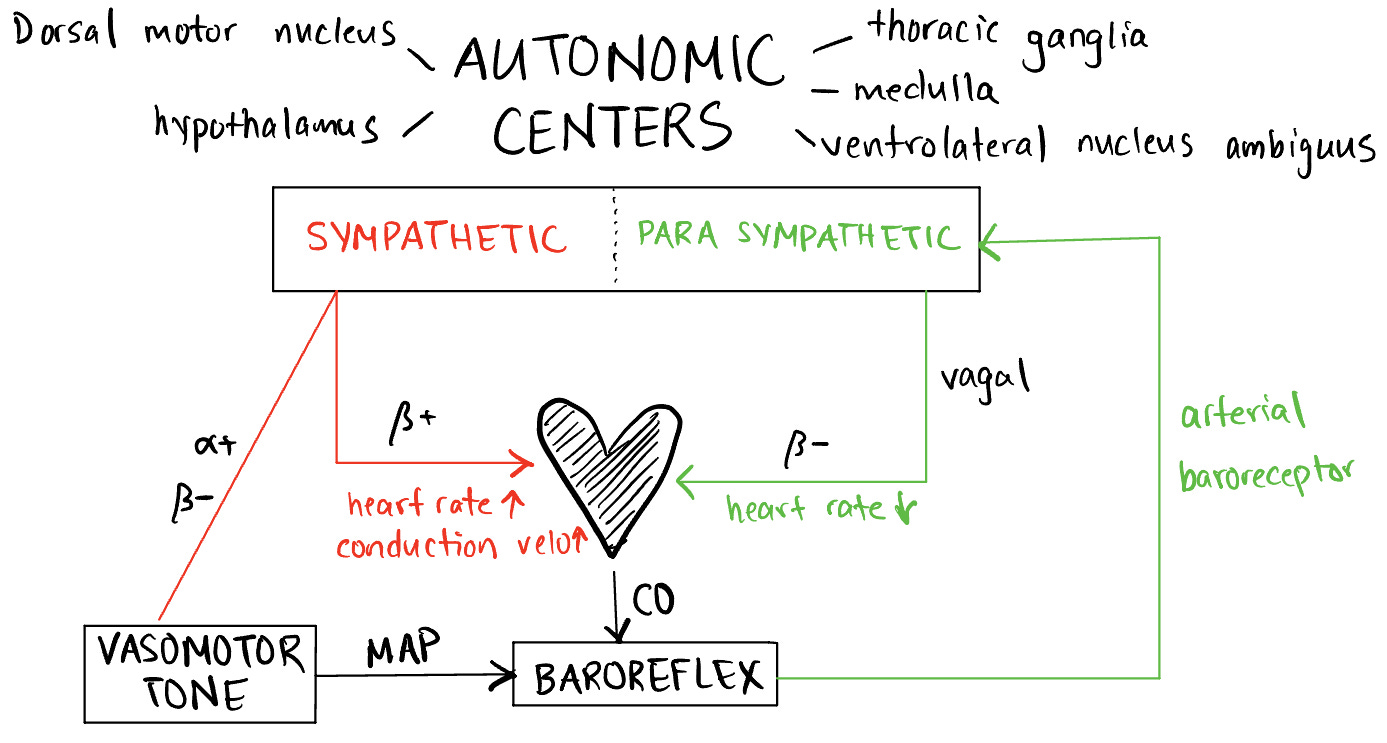 Dorsal motor nucleus
hypothalamus
AUTONOMIC
CENTERS
thoracic ganglia
medulla
ventrolateral nucleus ambiguus
SYMPATHETIC
PARA SYMPATHETIC
α+
β-
β+
heart rate ↑
conduction velo↑
vagal
β-
heart rate ↓
arterial
baroreceptor
CO
VASOMOTOR
TONE
MAP
BAROREFLEX